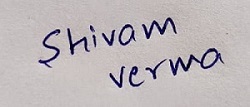 Shivam
verma